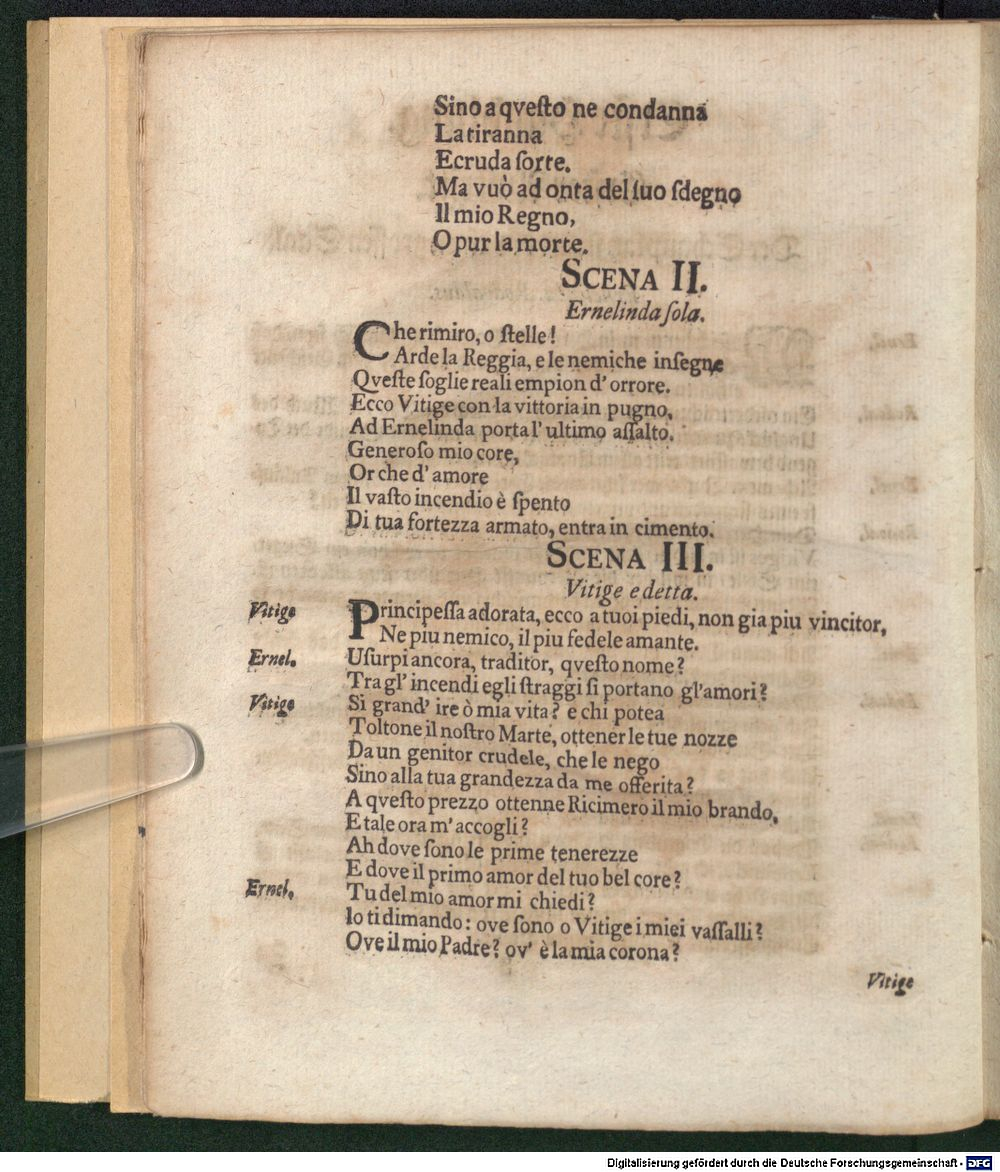 Sino a qvesto ne condanna
La tiranna
E cruda sorte.
Ma vuò ad onta del suo sdegno
Il mio Regno,
O pur la morte.
SCENA II.
Ernelinda sola.
Che rimiro, o stelle!
Arde la Reggia, e le nemiche insegne
Qveste soglie reali empion d' orrore.
Ecco Vitige con la vittoria in pugno,
Ad Ernelinda porta l' ultimo assalto.
Generoso mio core,
Or che d' amore
Il vasto incendio è spento
Di tua fortezza armato, entra in cimento.
SCENA III.
Vitige e detta.
Vitige Principessa adorata, ecco a tuoi piedi, non gia piu vincitor,
Ne piu nemico, il piu fedele amante.
Ernel. Usurpi ancora, traditor, qvesto nome?
Tra gl' incendi e gli straggi si portano gl'amori?
Vitige Si grand' ire ò mia vita? e chi potea
Toltone il nostro Marte, ottener le tue nozze
Da un genitor crudele, che le nego
Sino alla tua grandezza da me offerita?
A qvesto prezzo ottenne Ricimero il mio brando,
E tale ora m' accogli?
Ah dove sono le prime tenerezze
E dove il primo amor del tuo bel core?
Ernel. Tu del mio amor mi chiedi?
Io ti dimando: ove sono o Vitige i miei vassalli?
Ove il mio Padre? ov' è la mia corona?
Vitige
Digitalisierung gefördert durch die Deutsche Forschungsgemeinschaft - DFG